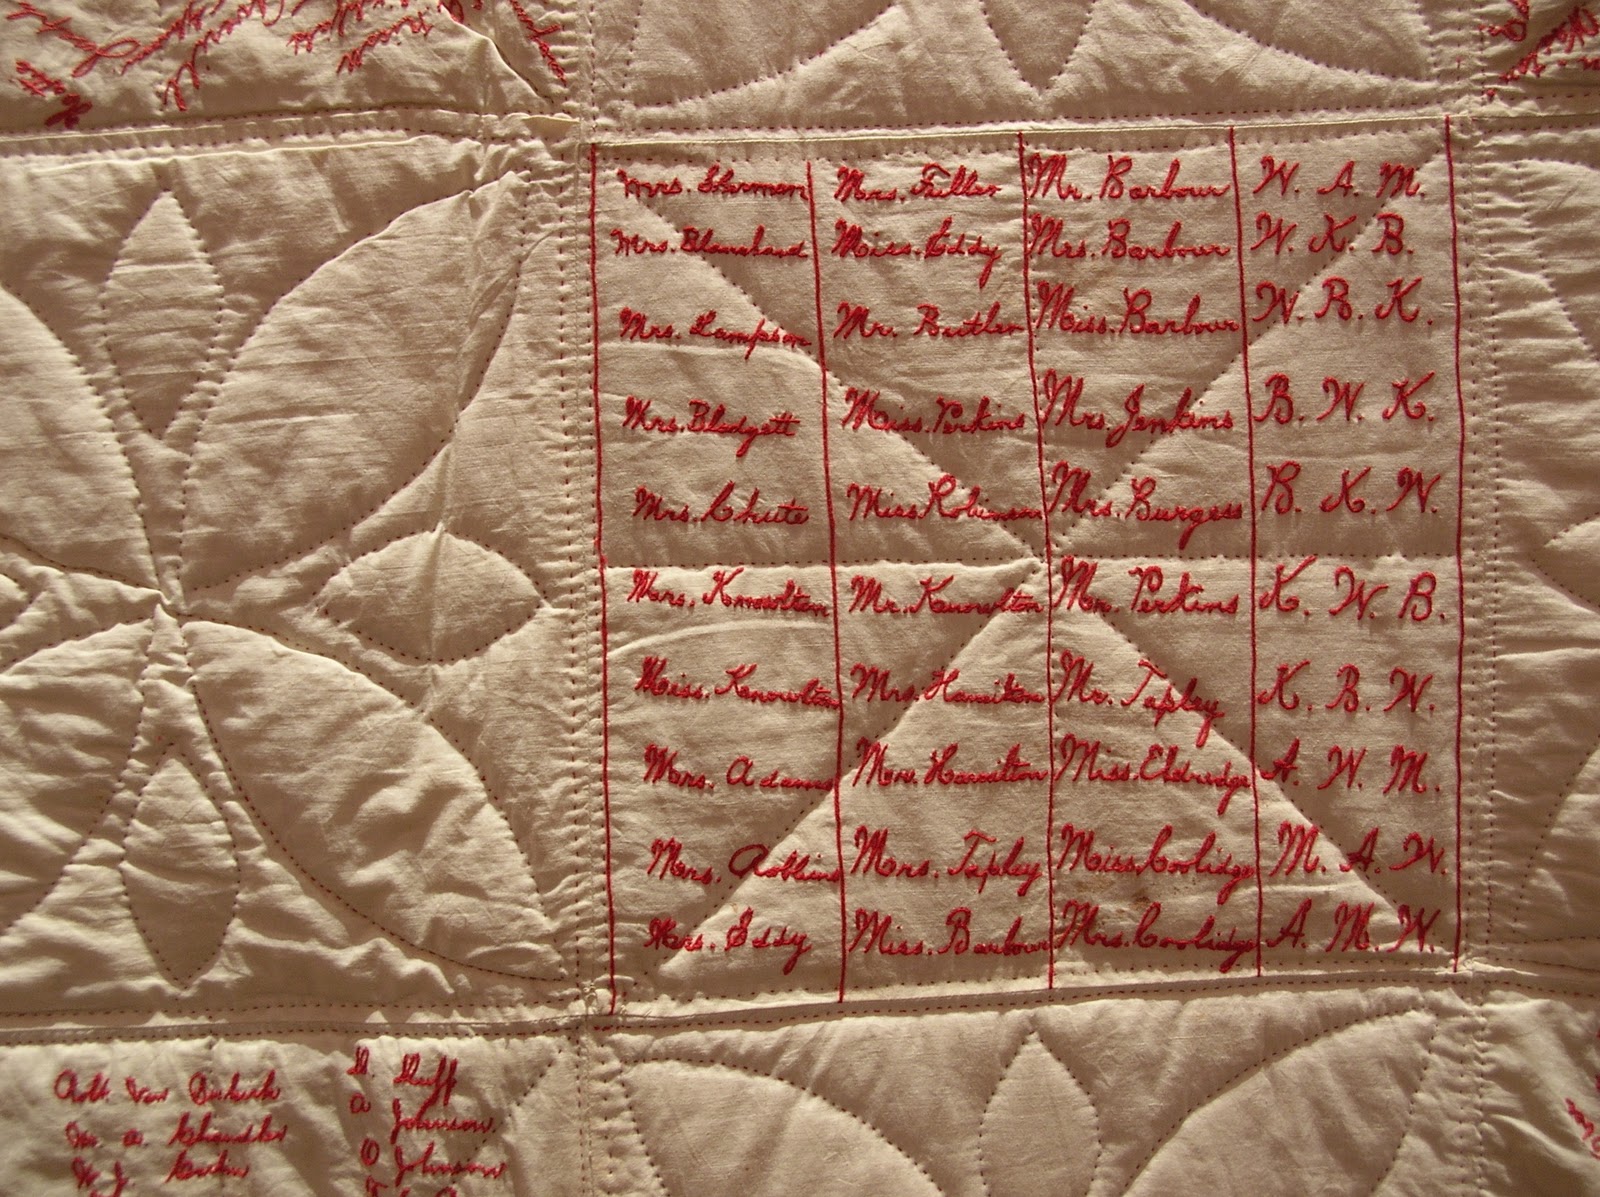 Mrs. Sherman Mrs. Fuller Mr. Barbour W. A. M.
Mrs. Blanchard Miss. Eddy Mrs. Barbour W. K. B.
Mrs. Lampson Mr. Butler Miss. Barbour W. B. K.
Mrs. Blodgett Miss. Perkins Mrs. Jenkins B. W. K.
Mrs. Chute Miss Robinson Mrs. Burgess B. K. W.
Mrs. Knowlton Mr. Knowlton Mr. Perkins K. W. B.
Miss. Knowlton Mrs. Hamilton Mr. Tapley K. B. W.
Mrs. Adams Hamilton Miss. Eldredge A. W. M.
Mrs. Robbins Mrs. Tapley Miss. Coolidge M. A. W.
Mrs. Eddy Miss. Barbour Mrs. Coolidge A. M. W.
Van
Huff
a. Chandler
a Johnson
W. J.
O Johnson